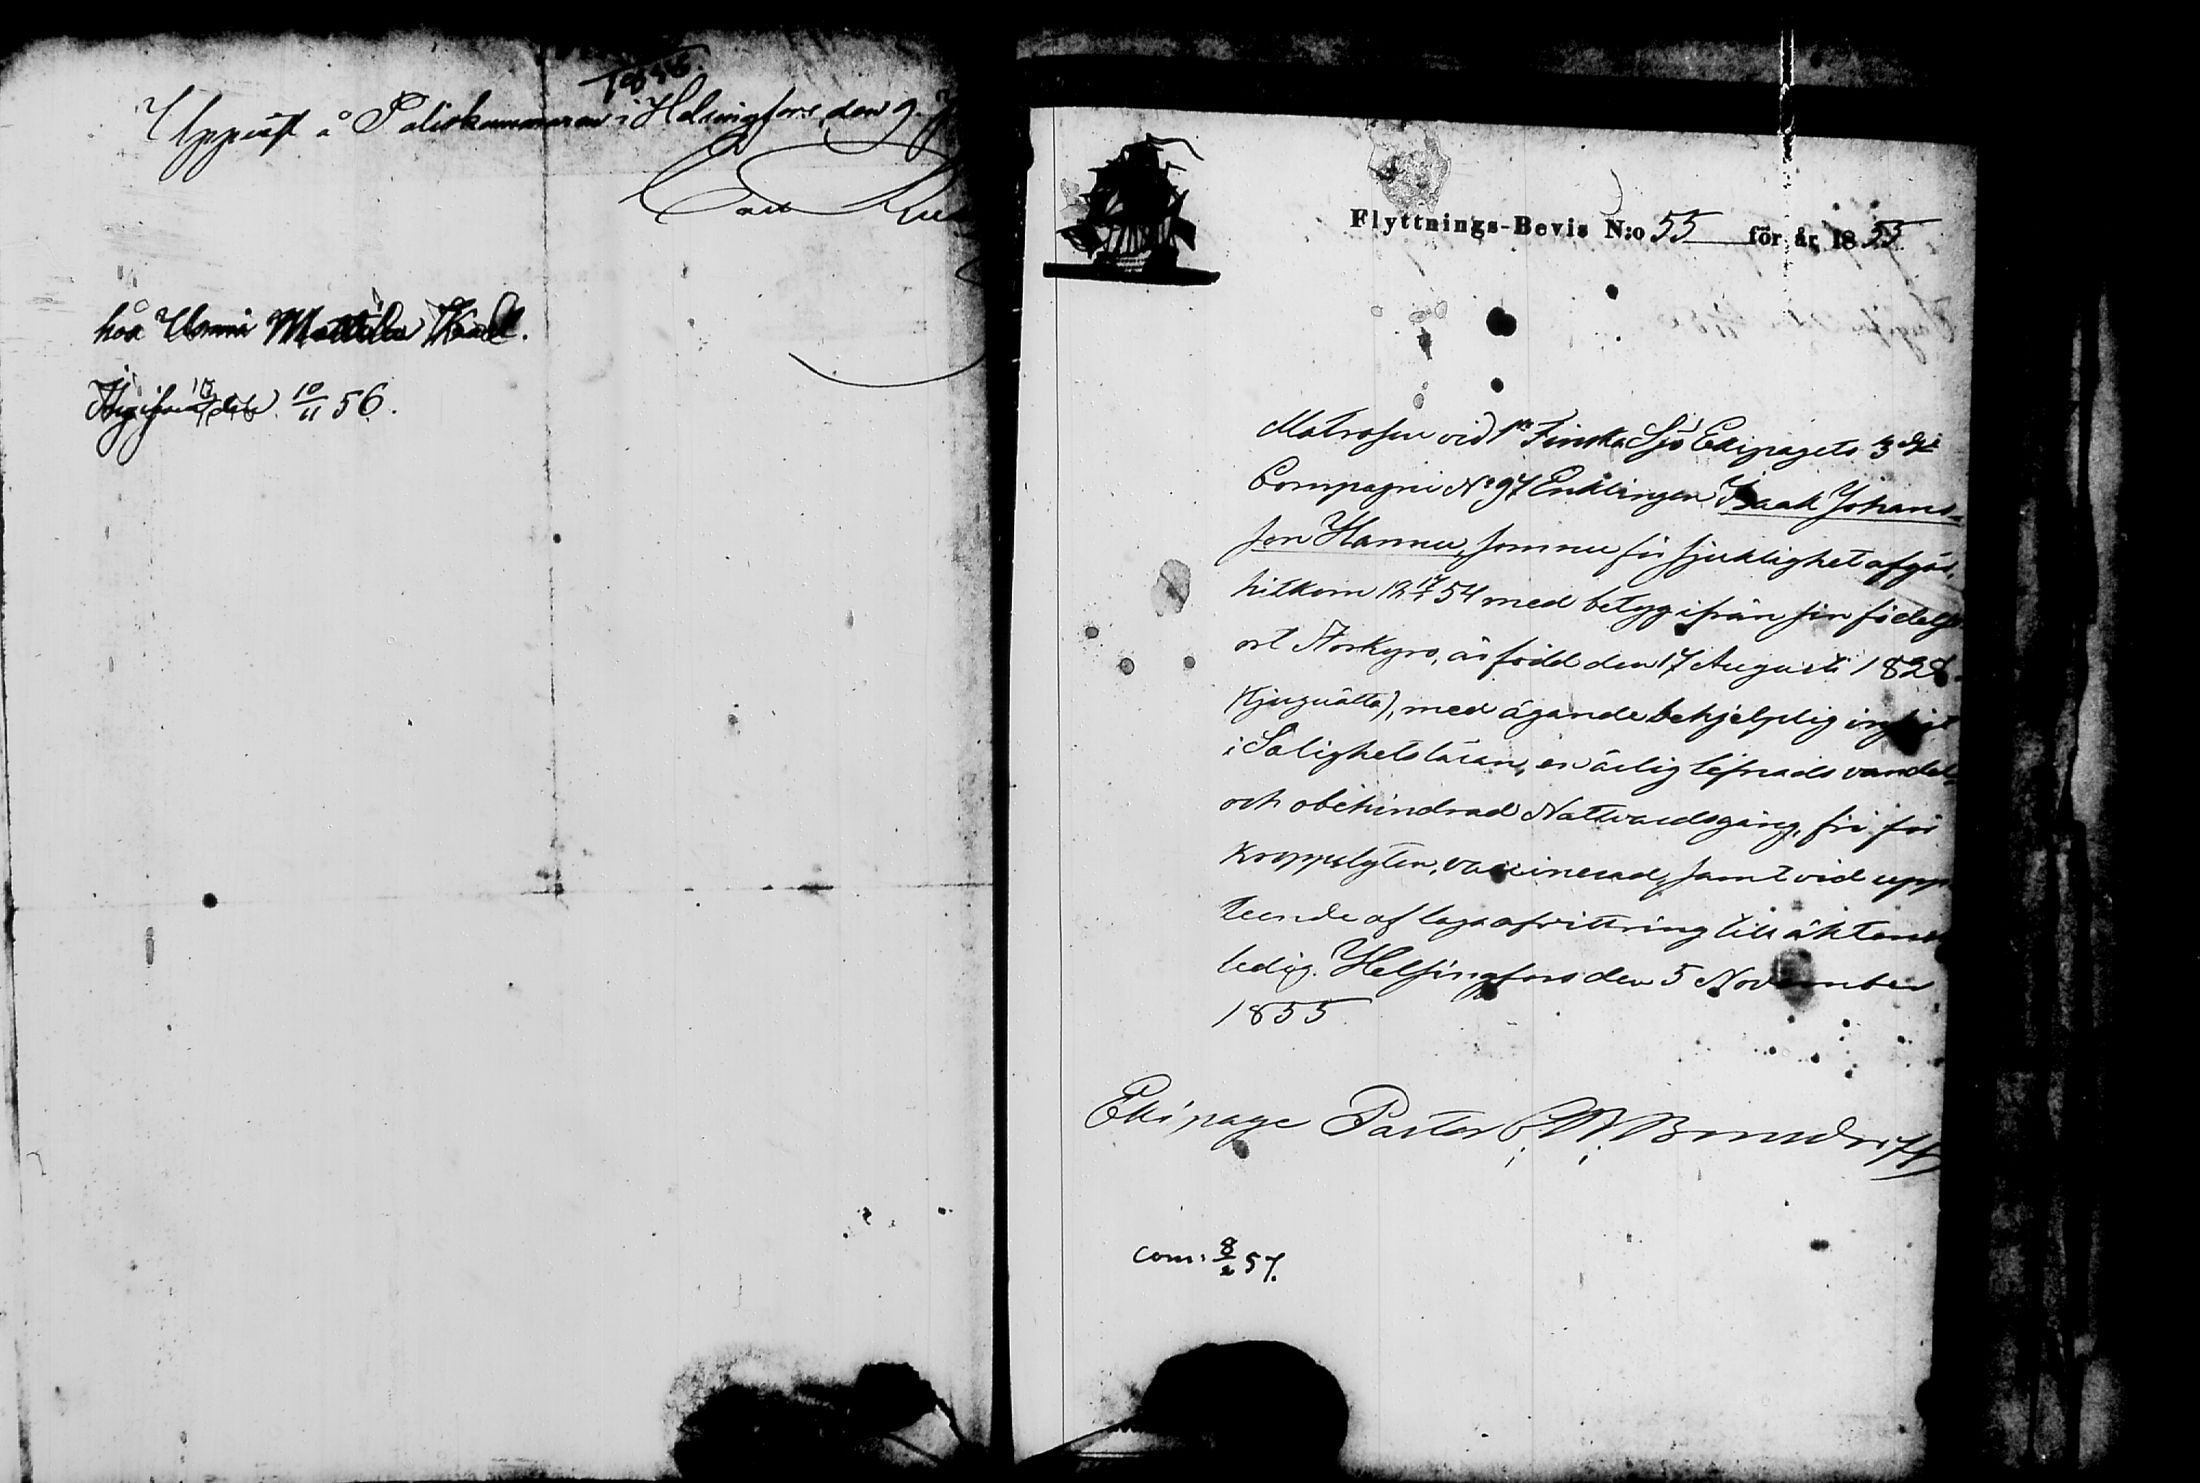 1856.
Uppvist å Poliskammaren i Helsingfors, den 9
Carl
hos Unni Mattila Karl.
10/11 56.
Flyttnings-Bevis N:o 55 för år 1855
Matrosen vid 1sta Finska Sjö Ekipagets 3dje
Compagni No 97 Enklingen Isaak Johans-
son Hannu, som nu för sjuklighet afgår,
hitkom 18 54 med betyg ifrån sin födelse
ort Storkyro, är född den 17 Augusti 1828
(tjuguåtta), med ägande behjelplig insigt
i Salighetsläran, en ärlig lefnads vandel,
och obehindrad Nattvardsgång, fri för
Kroppslyten, vaccinerad, samt vid upp
teende af laga afvittring till äkten
ledig. Helsingfors den 5 November
1855
Ekipage Pastor Bonsdorff
com: 8/2 57.